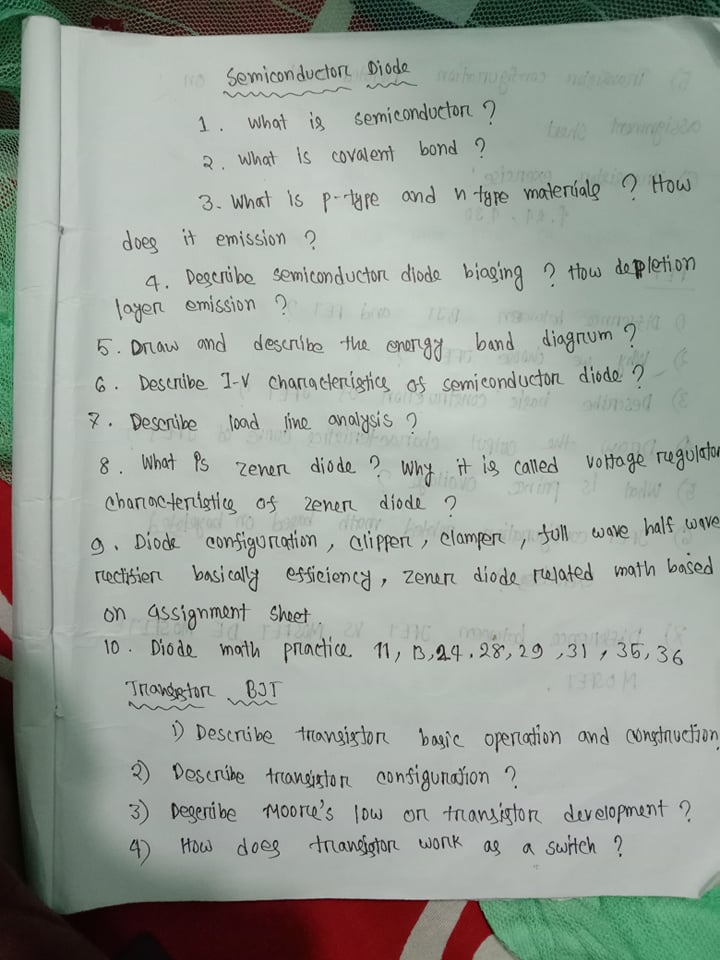 Semiconductor Diode
1. What is semiconductor ?
2. What is covalent bond ?
3. What is p-type and n type materials ? How
does it emission ?
4. Describe semiconductor diode biasing ? How depletion
layer emission ?
5. Draw and describe the energy band diagrum ?
6. Describe I-V characteristics of semiconductor diode ?
7. Describe load line analysis ?
8. What is zener diode ? Why it is called voltage regulator
characteristics of zener diode ?
9. Diode configuration, clipper, clamper, full wave half wave
rectifier basically efficiency, zener diode related math based
on assignment sheet
10. Diode math practice 11, 13, 24. 28, 29, 31, 35, 36
Transistor BJT
1) Describe transistor basic operation and construction
2) Describe transistor configuration ?
3) Describe Moore's low on transistor development ?
4) How does transistor work as a switch ?